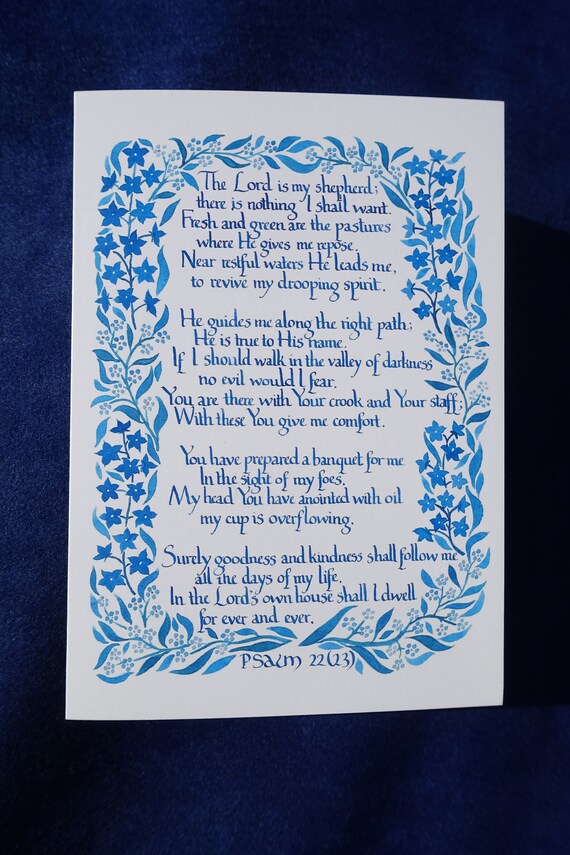 The Lord is my shepherd;
there is nothing I shall want.
Fresh and green are the pastures
where He gives me repose.
Near restful waters He leads me,
to revive my drooping spirit.
He guides me along the right path;
He is true to His name.
If I should walk in the valley of darkness
no evil would I fear.
You are there with Your crook and Your staff;
With these You give me comfort.
You have prepared a banquet for me
In the sight of my foes.
My head You have anointed with oil
my cup is overflowing.
Surely goodness and kindness shall follow me
all the days of my life.
In the Lord's own house shall I dwell
for ever and ever.
Psalm 22(23)